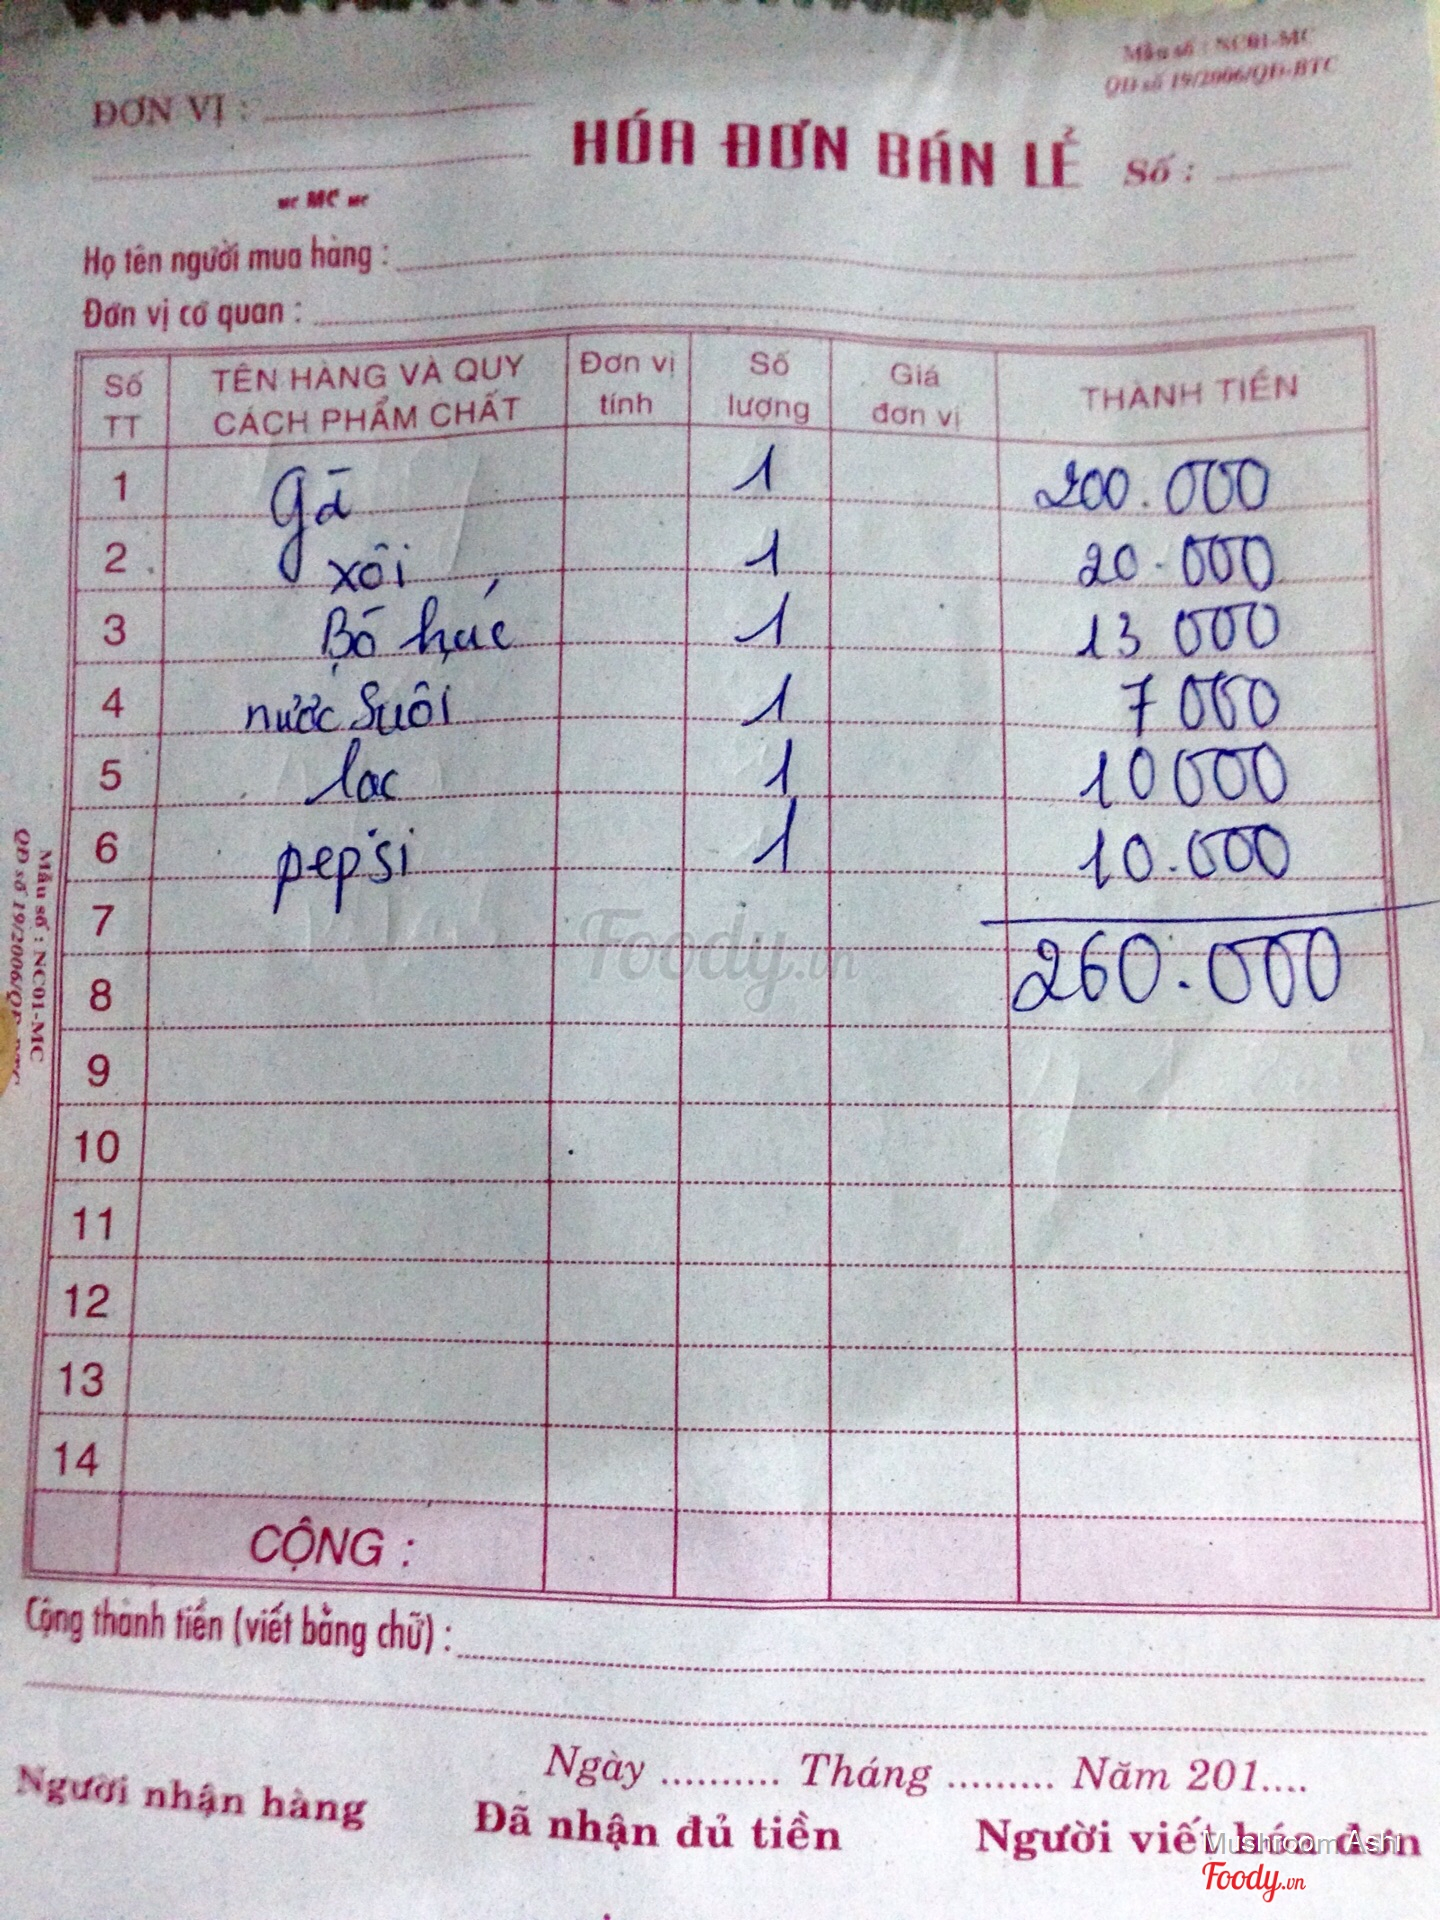 Mẫu số : NC01-MC
QĐ số 19/2006/QĐ-BTC
ĐƠN VỊ :
HÓA ĐƠN BÁN LẺ
Số :
MC
Họ tên người mua hàng :
Đơn vị cơ quan :
Số TT TÊN HÀNG VÀ QUY CÁCH PHẨM CHẤT Đơn vị tính Số lượng Giá đơn vị THÀNH TIỀN
1 Gà 1 200.000
2 xôi 1 20.000
3 Bò húc 1 13 000
4 nước Suôi 1 7 000
5 lac 1 10 000
6 pepsi 1 10.000
7
8 260.000
9
10
11
12
13
14
CỘNG :
Cộng thành tiền (viết bằng chữ) :
Ngày .......... Tháng ......... Năm 201....
Người nhận hàng Đã nhận đủ tiền Người viết hóa đơn
Mẫu số : NC01-MC
QĐ số 19/2006/QĐ-BTC
Foody.vn
Mushroom Ashi
Foody.vn